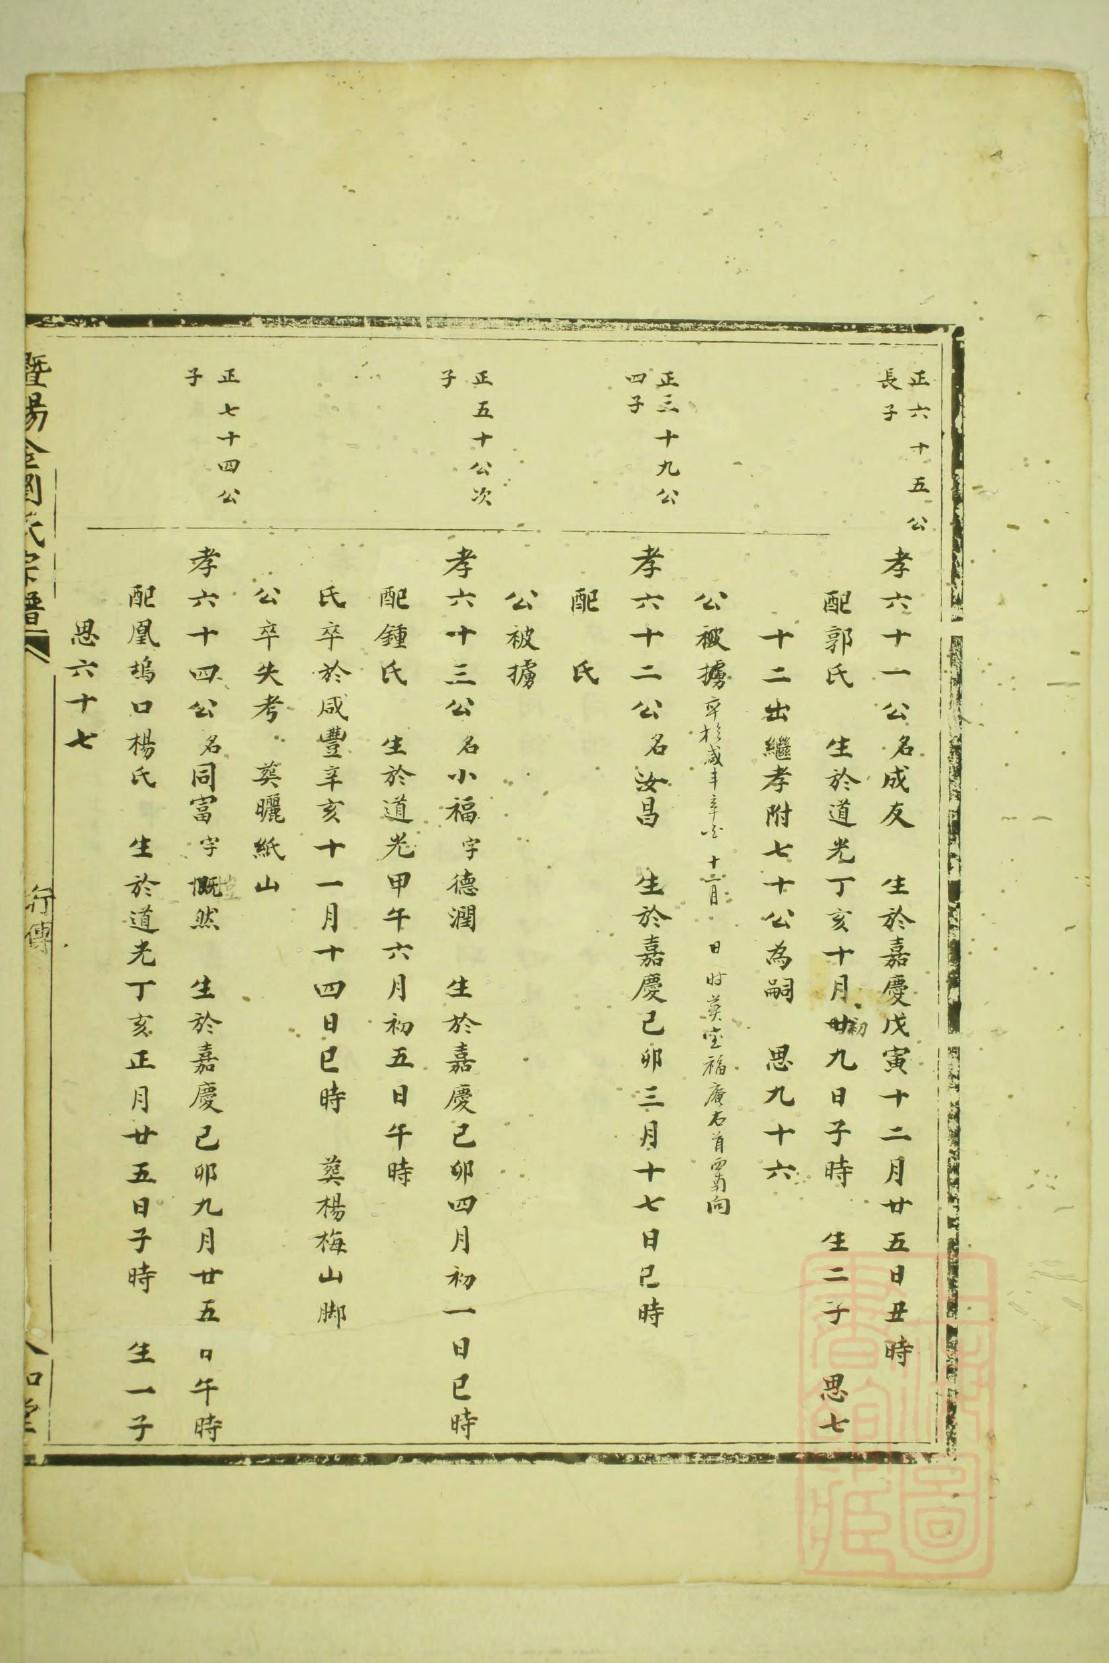 正六十五公
長子
孝六十一公名成友 生於嘉慶戊寅十二月廿五日丑時
配郭氏 生於道光丁亥十月廿九日子時 生二子 思七
初
十二出繼孝附七十公為嗣 思九十六
公被擄
卒於咸丰辛 十二月 日時葬 福庵右首 向
正三十九公
四子
孝六十二公名汝昌 生於嘉慶己卯三月十七日巳時
配 氏
公被擄
正五十公次
子
孝六十三公名小福字德潤 生於嘉慶己卯四月初一日巳時
配鍾氏 生於道光甲午六月初五日午時
氏卒於咸豐辛亥十一月十四日巳時 葬楊梅山脚
公卒失考 葬曬紙山
正七十四公
子
孝六十四公名同富字慨然 生於嘉慶己卯九月廿五日午時
配凰塢口楊氏 生於道光丁亥正月廿五日子時 生一子
思六十七
暨陽 氏宗譜
行傳